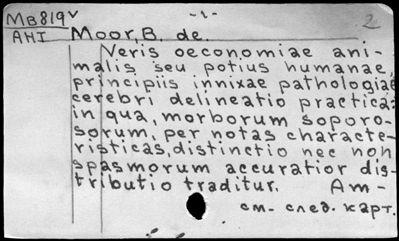 MB819v -1- 2
AHI Moor, B. de.
Veris oeconomiae ani-
malis seu potius humanae,
principiis innixae pathologiae
cerebri delineatio practica:
in qua, morborum soporo-
sorum, per notas characte-
risticas, distinctio nec non
spasmorum accuratior dis-
tributio traditur. Am-
см. след. карт.